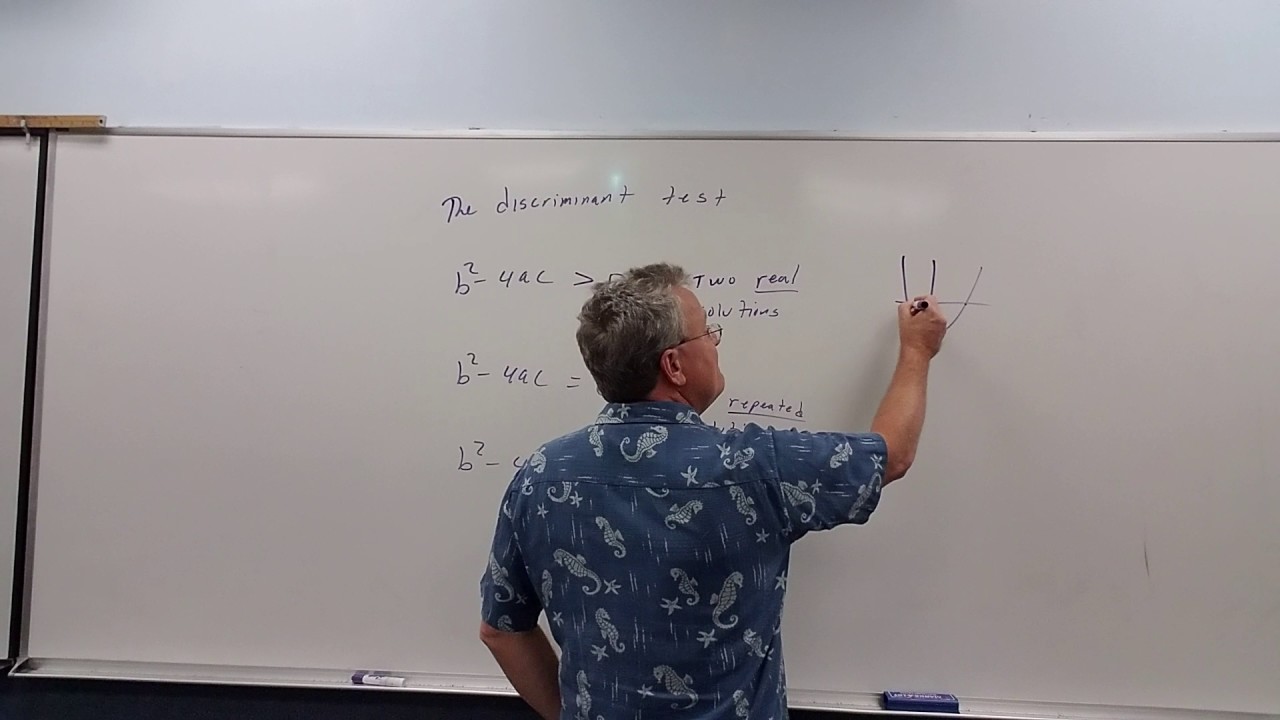 The discriminant test
b² - 4ac > Two real
solutions
b² - 4ac =
repeated
b² - 4